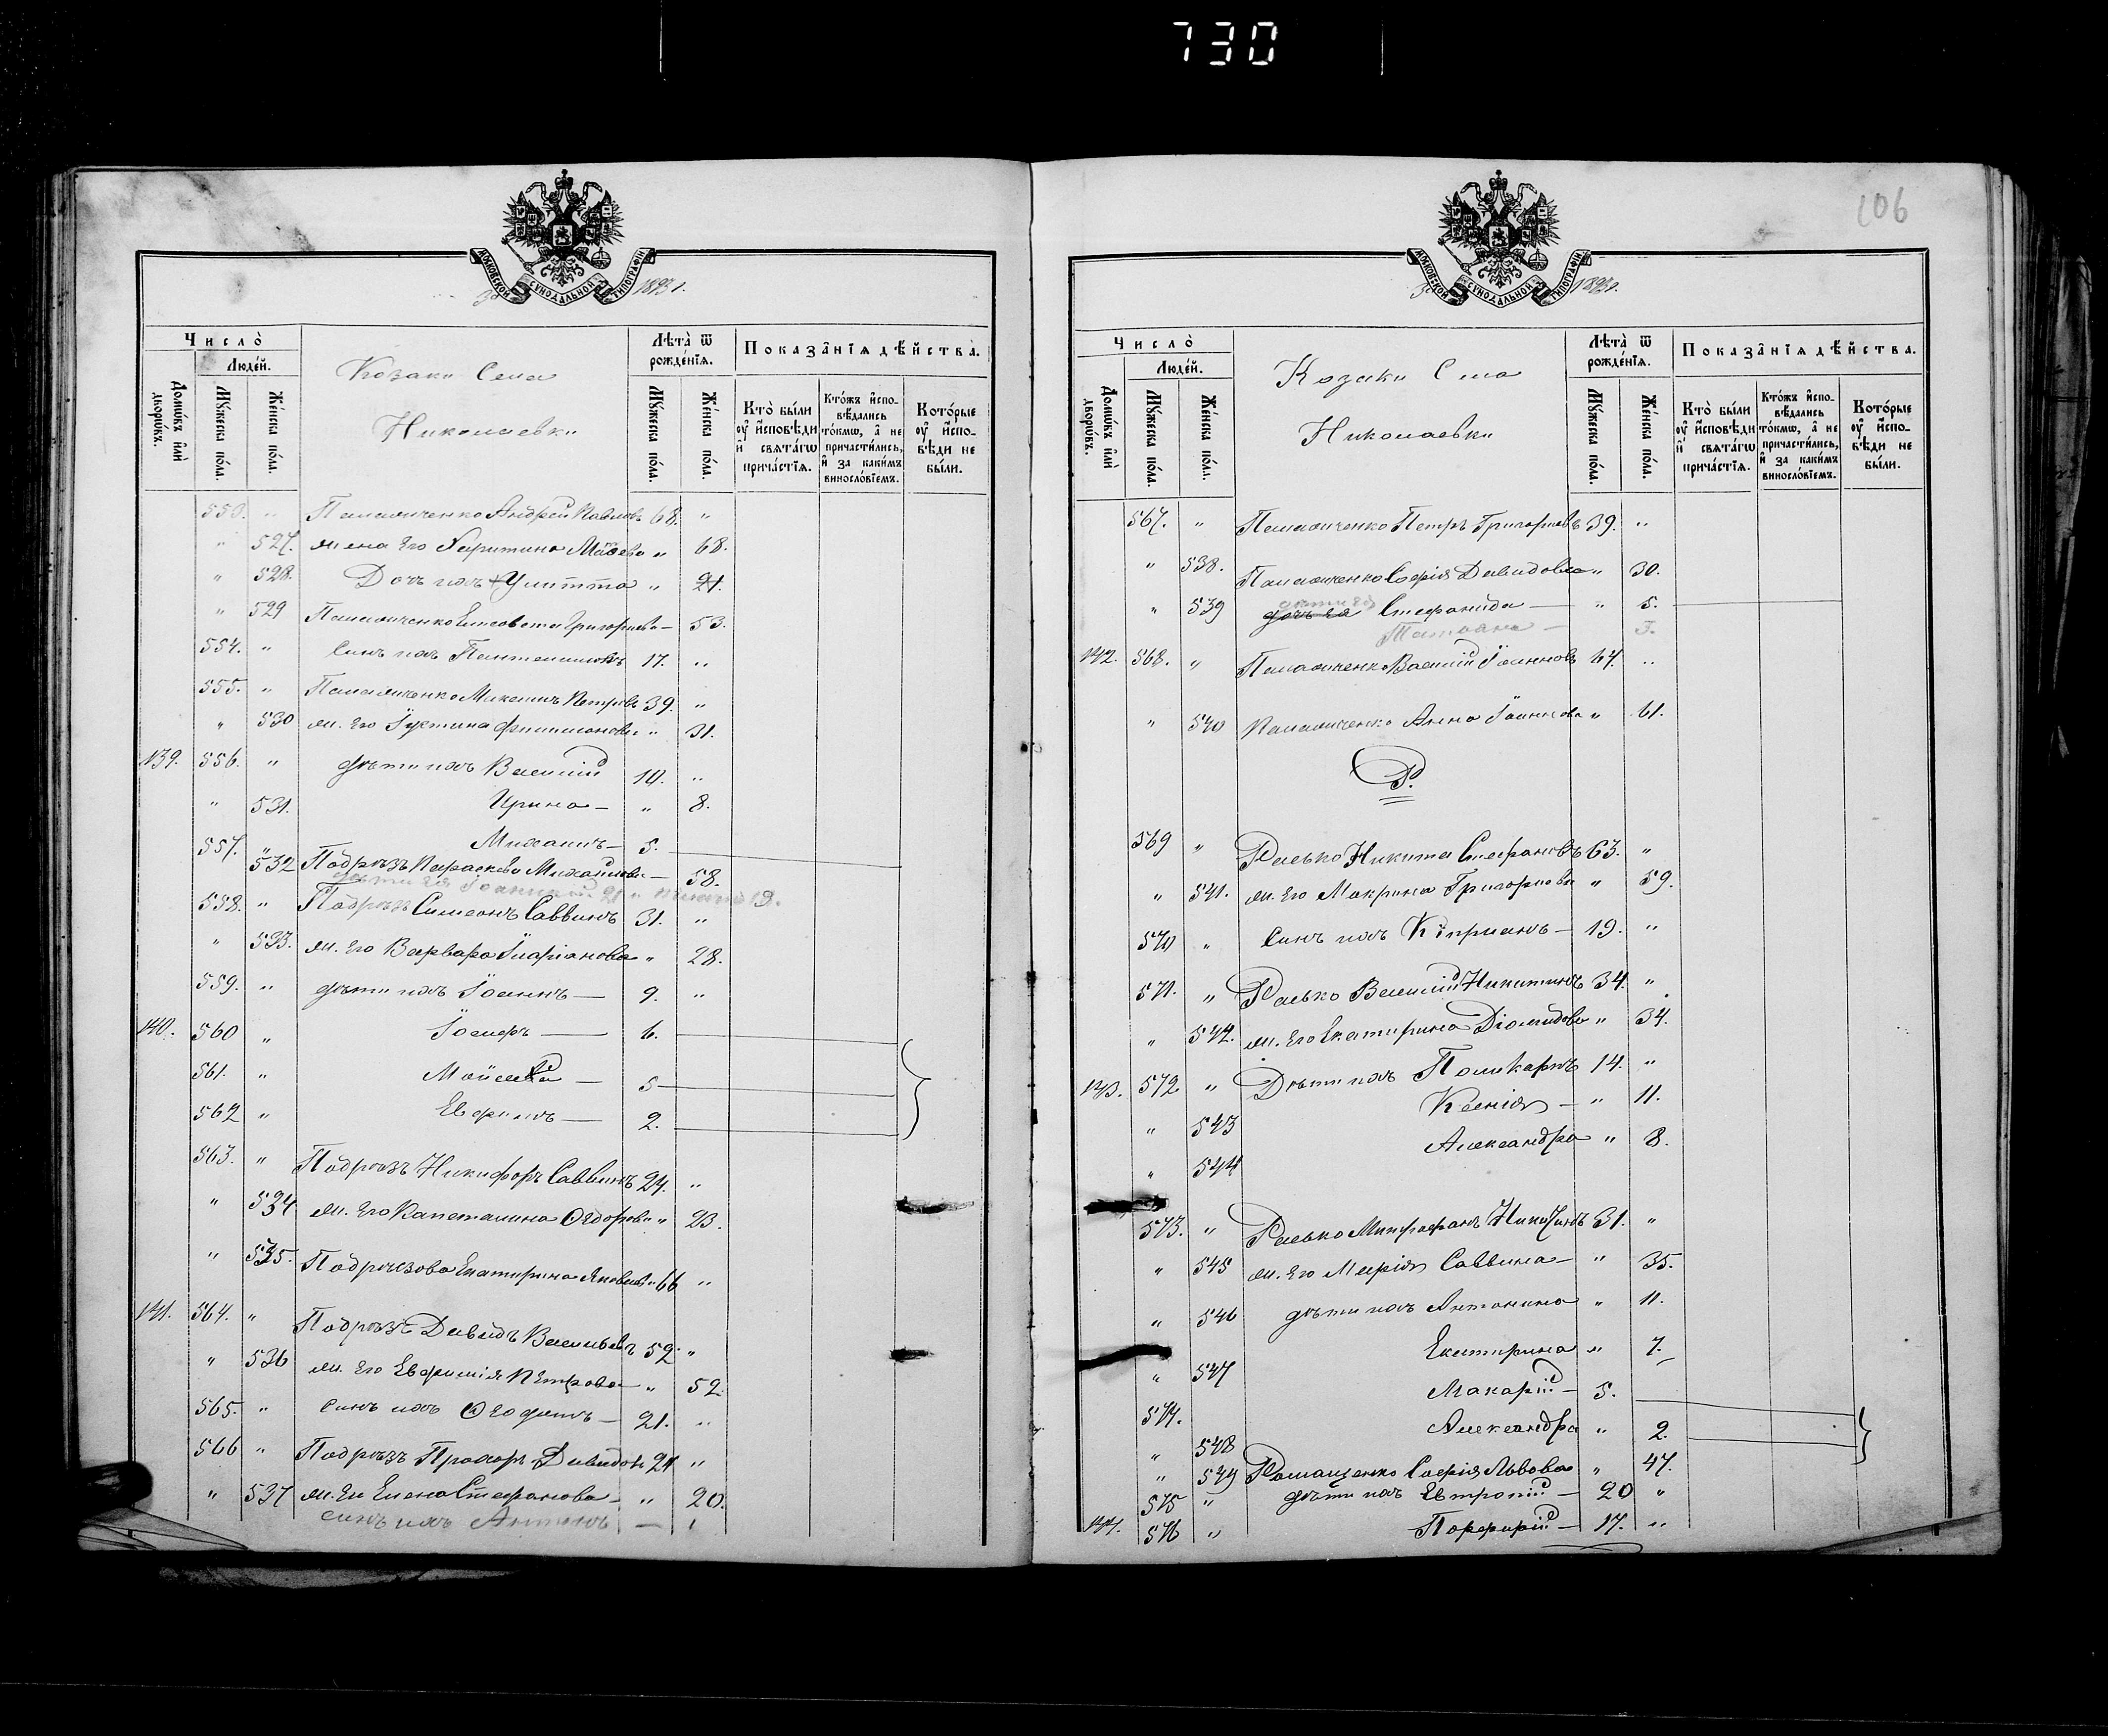 730
106
ЗА 1893 г.
Число̀
Людéй.
Домѡ́въ и҆лѝ дворѡ́въ.
Мꙋ́жеска по́ла.
Же́нска по́ла.
Козаки Села
Николаевки
Лѣ́та ѿ рождéнїѧ.
Мꙋ́жеска по́ла.
Же́нска по́ла.
Показа̂нїѧ дѣ́йства.
Кто̀ бы́ли ᲂу҆ и҆сповѣ́ди и҆ свѧта́гѡ прича́стїѧ.
Кто́жъ и҆спо-вѣ́дались то́кмѡ, а҆ не причасти́лись, и҆ за каки́мъ винослóвїемъ.
Кото́рые ᲂу҆ и҆спо-вѣ́ди не бы́ли.
553. " Паламиченко Андрей Павловъ 68. "
" 527. жена Его Харитина Матѳеева " 68.
" 528. Дочь ихъ Улитта " 21.
" 529 Паламиченко Елисавета Григорьева – 53.
554. " Сынъ ихъ Пантелимонъ 17. "
555. " Паламиченко Михаилъ Петровъ 39. "
" 530 ж. Его Іустина Филимонова " 31.
139. 556. " дѣти ихъ Василій 10. "
" 531. Ирина – " 8.
557. " Михаилъ – 5.
532 Подрѣзъ Параскева Михайлова – 58.
дѣти ея Іоанникій 21 " 13.
558. " Подрѣзъ Симеонъ Саввинъ 31. "
" 533. ж. Его Варвара Иларіанова " 28.
559. " дѣти ихъ Іоаннъ – 9. "
140. 560 " Іосифъ – 6.
561. " Мойсей – 5
562 " Евфимъ – 2.
563. " Подрѣзъ Никифоръ Саввинъ 24. "
" 534 ж. Его Капеталина Ѳедорова " 23.
" 535. Подрѣзова Екатерина Яковлева " 66 "
141. 564. " Подрѣзъ Давидъ Васильевъ 52. "
" 536 ж. Его Евфимія Петрова – " 52.
565. " Сынъ ихъ Ѳеофилъ – 21. "
566 " Подрѣзъ Прохоръ Давидовъ 21 "
" 537 ж. Ег Елена Стефанова – " 20.
сынъ ихъ Антонъ – 1
ЗА 1893 г.
Число̀
Людéй.
Домѡ́въ и҆лѝ дворѡ́въ.
Мꙋ́жеска по́ла.
Же́нска по́ла.
Козаки Села
Николаевки
Лѣ́та ѿ рождéнїѧ.
Мꙋ́жеска по́ла.
Же́нска по́ла.
Показа̂нїѧ дѣ́йства.
Кто̀ бы́ли ᲂу҆ и҆сповѣ́ди и҆ свѧта́гѡ прича́стїѧ.
Кто́жъ и҆спо-вѣ́дались то́кмѡ, а҆ не причасти́лись, и҆ за каки́мъ винослóвїемъ.
Кото́рые ᲂу҆ и҆спо-вѣ́ди не бы́ли.
567. " Паламиченко Петръ Григорьевъ 39. "
" 538. Паламиченко Софія Давидова " 30.
" 539 дѣти ея дочь ея Стефанида – " 5.
Татіана – 3.
142. 568. " Паламиченк Василій Іоанновъ 64. "
" 540 Паламиченко Анна Іоаннова " 61.
Р.
569 " Расько Никита Стефановъ 63. "
" 541. ж. Его Макрина Григорьева " 59.
570 " Сынъ ихъ Кипріанъ – 19. "
571. " Расько Василій Никитинъ 34. "
" 542. ж. Его Екатерина Діомидова " 34.
143. 572 " Дѣти ихъ Поликарпъ 14. "
" 543 Ксенія – " 11.
" 544 Александра " 8.
573. " Расько Митрофанъ Никитинъ 31. "
" 545 ж. Его Марія Саввина – " 35.
" 546 дѣти ихъ Антонина " 11.
" 547 Екатерина " 7.
574. Макарій – 5.
" 548 Александра " 2.
" 549 Ромащенко Софія Львова " 47.
575 " дѣти ихъ Евтропій – 20 "
144. 576 " Порфирій – 17. "